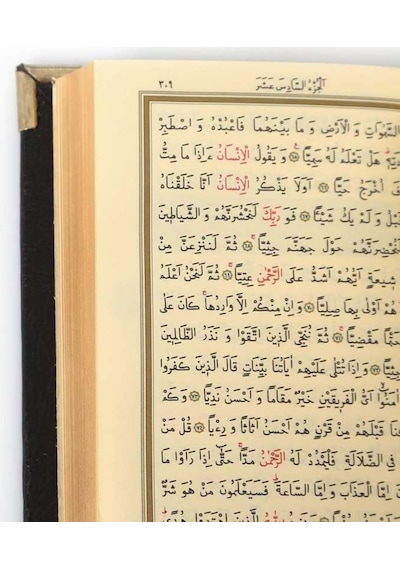 اَلْجُزْءُ السَّادِسَ عَشَرَ ٣٠٩
السَّمٰوَاتِ وَالْاَرْضِ وَمَا بَيْنَهُمَا فَاعْبُدْهُ وَاصْطَبِرْ
هَلْ تَعْلَمُ لَهُ سَمِيًّا ﴿٦٥﴾ وَيَقُولُ الْاِنْسَانُ ءَاِذَا مَا مِتُّ
اُخْرَجُ حَيًّا ﴿٦٦﴾ اَوَلَا يَذْكُرُ الْاِنْسَانُ اَنَّا خَلَقْنَاهُ
وَلَمْ يَكُ شَيْئًا ﴿٦٧﴾ فَوَرَبِّكَ لَنَحْشُرَنَّهُمْ وَالشَّيَاطِينَ
لَنُحْضِرَنَّهُمْ حَوْلَ جَهَنَّمَ جِثِيًّا ﴿٦٨﴾ ثُمَّ لَنَنْزِعَنَّ مِنْ
شِيعَةٍ اَيُّهُمْ اَشَدُّ عَلَى الرَّحْمٰنِ عِتِيًّا ﴿٦٩﴾ ثُمَّ لَنَحْنُ اَعْلَمُ
هُمْ اَوْلٰى بِهَا صِلِيًّا ﴿٧٠﴾ وَاِنْ مِنْكُمْ اِلَّا وَارِدُهَا كَانَ عَلٰى
حَتْمًا مَقْضِيًّا ﴿٧١﴾ ثُمَّ نُنَجِّي الَّذِينَ اتَّقَوْا وَنَذَرُ الظَّالِمِينَ
جِثِيًّا ﴿٧٢﴾ وَاِذَا تُتْلٰى عَلَيْهِمْ اٰيَاتُنَا بَيِّنَاتٍ قَالَ الَّذِينَ كَفَرُوا
اٰمَنُوا اَيُّ الْفَرِيقَيْنِ خَيْرٌ مَقَامًا وَاَحْسَنُ نَدِيًّا ﴿٧٣﴾ وَكَمْ
قَبْلَهُمْ مِنْ قَرْنٍ هُمْ اَحْسَنُ اَثَاثًا وَرِءْيًا ﴿٧٤﴾ قُلْ مَنْ
فِي الضَّلَالَةِ فَلْيَمْدُدْ لَهُ الرَّحْمٰنُ مَدًّا حَتّٰى اِذَا رَاَوْا مَا
اِمَّا الْعَذَابَ وَاِمَّا السَّاعَةَ فَسَيَعْلَمُونَ مَنْ هُوَ شَرٌّ